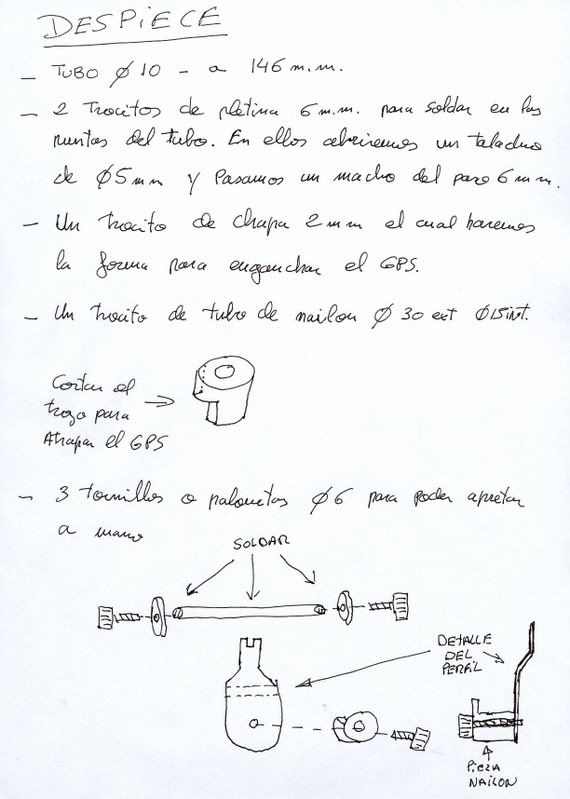 DESPIECE
- TUBO Ø 10 - a 146 m.m.
- 2 Trocitos de pletina 6 m.m. para soldar en las
puntas del tubo. En ellos abriremos un taladro
de Ø5mm y Pasamos un macho del paso 6 mm.
- Un trocito de chapa 2mm el cual haremos
la forma para enganchar el GPS.
- Un trocito de tubo de nailon Ø 30 ext Ø15int.
Cortar el
trozo para
Atrapar el GPS
- 3 tornillos o palometas Ø6 para poder apretar
a mano
SOLDAR
DETALLE
DEL
PERFIL
PIEZA
NAILON